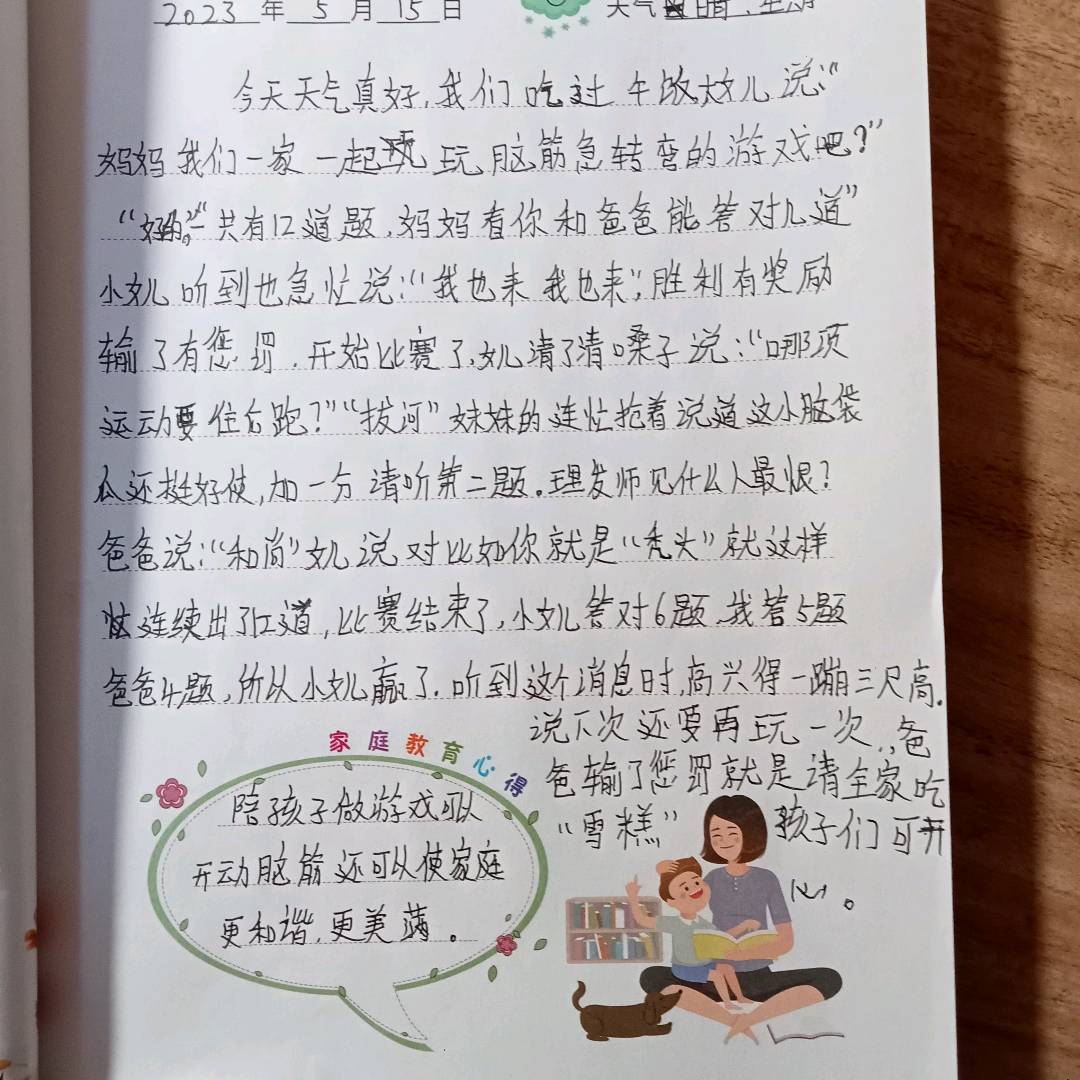 2023 年 5 月 15 日 天气 晴
今天天气真好,我们吃过午饭大女儿说:“
妈妈我们一家一起玩脑筋急转弯的游戏吧?”
一共有12道题,妈妈看你和爸爸能答对几道”
小女儿听到也急忙说:“我也来 我也来”;胜利有奖励
输了有惩罚,开始比赛了,女儿清了清嗓子说:“哪项
运动要往后跑?”“拔河”妹妹的连忙抢着说道这小脑袋
瓜还挺好使,加一分请听第二题。理发师见什么人最恨?
爸爸说:“和尚”女儿说对比如你就是“秃头”就这样
连续出了12道,比赛结束了,小女儿答对6题,我答5题
爸爸4题,所以小女儿赢了.听到这个消息时,高兴得一蹦三尺高.
说下次还要再玩一次,爸
爸输了惩罚就是请全家吃
“雪糕” 孩子们可开
心。
家庭教育心得
陪孩子做游戏可以
开动脑筋还可以使家庭
更和谐,更美满。